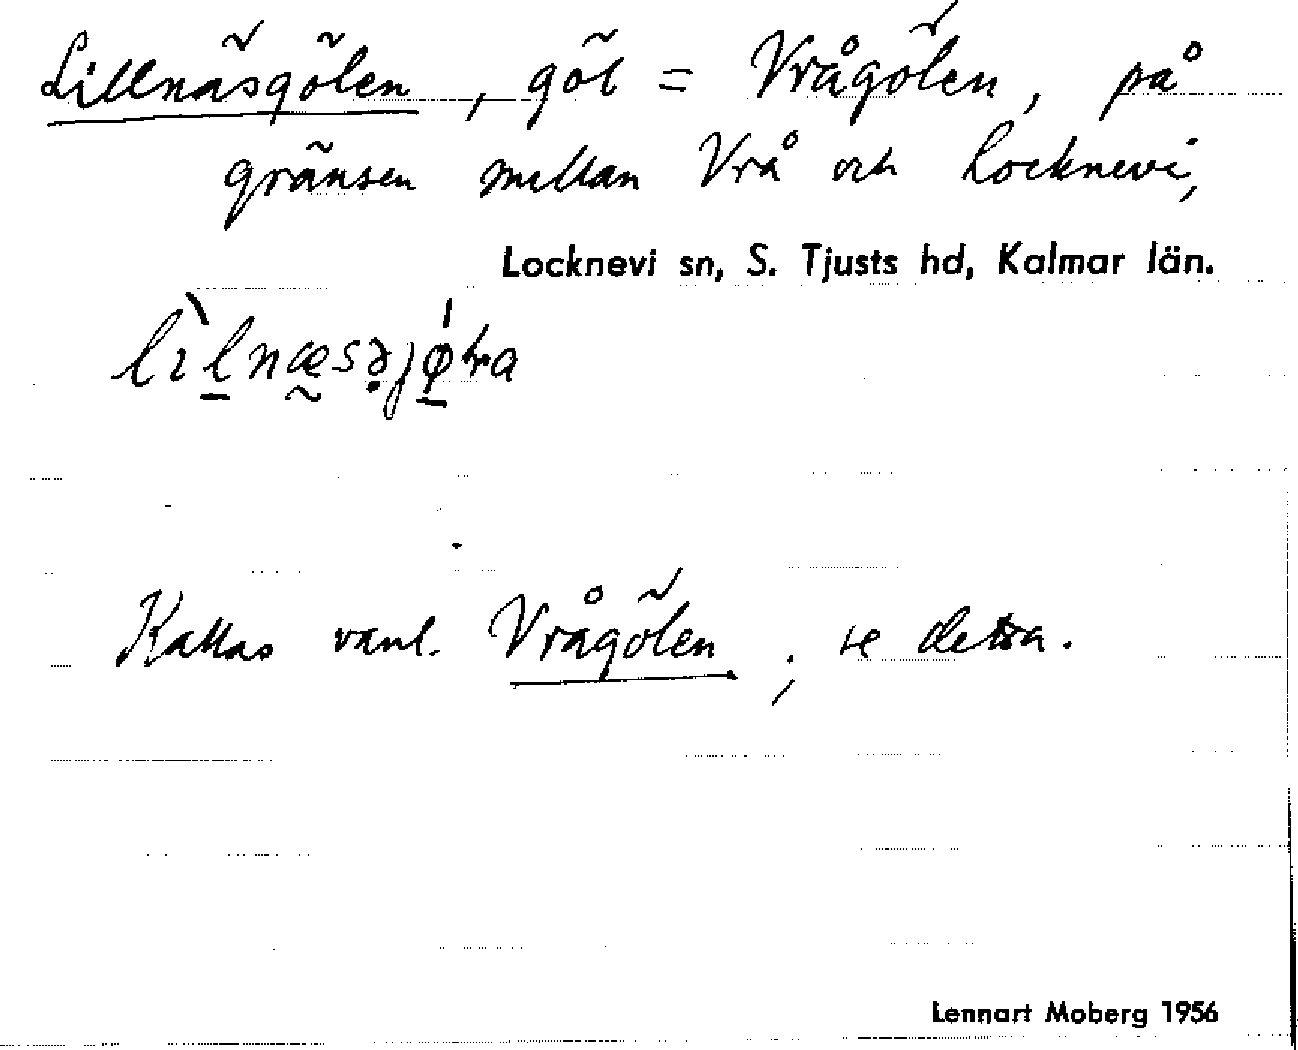 Lillnäsgölen, göl = Vrågölen, på
gränsen mellan Vrå och Locknevi,
Locknevi sn, S. Tjusts hd, Kalmar län.
Kallas vanl. Vrågölen; se detta.
Lennart Moberg 1956